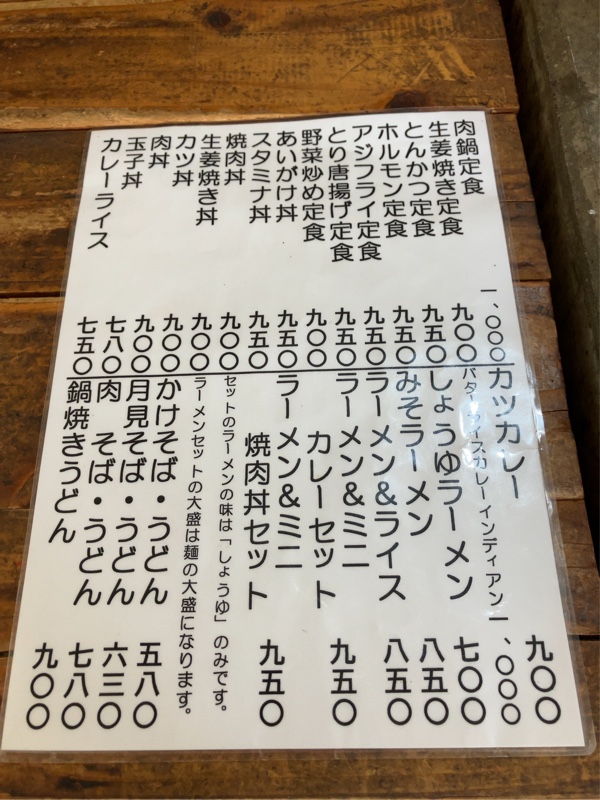 肉鍋定食 一、〇〇〇
生姜焼き定食 九〇〇
とんかつ定食 九五〇
ホルモン定食 九五〇
アジフライ定食 九五〇
とり唐揚げ定食 九五〇
野菜炒め定食 九〇〇
あいがけ丼 九五〇
スタミナ丼 九五〇
焼肉丼 九〇〇
生姜焼き丼 九〇〇
カツ丼 九〇〇
肉丼 九〇〇
玉子丼 七八〇
カレーライス 七五〇
カツカレー 九〇〇
バターライスカレーインディアン 一、〇〇〇
しょうゆラーメン 七〇〇
みそラーメン 八五〇
ラーメン&ライス 八五〇
ラーメン&ミニ
カレーセット 九五〇
ラーメン&ミニ
焼肉丼セット 九五〇
セットのラーメンの味は「しょうゆ」のみです。
ラーメンセットの大盛は麺の大盛になります。
かけそば・うどん 五八〇
月見そば・うどん 六三〇
肉 そば・うどん 七八〇
鍋焼きうどん 九〇〇